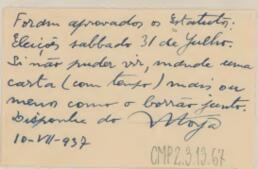 Foram aprovados os Estatutos.
Eleição sabbado 31 de Julho.
Si não puder vir, mande uma
carta (com tempo) mais ou
menos como o borrão junto.
Disponha do
10-VII-937
CMP2.3.13.67